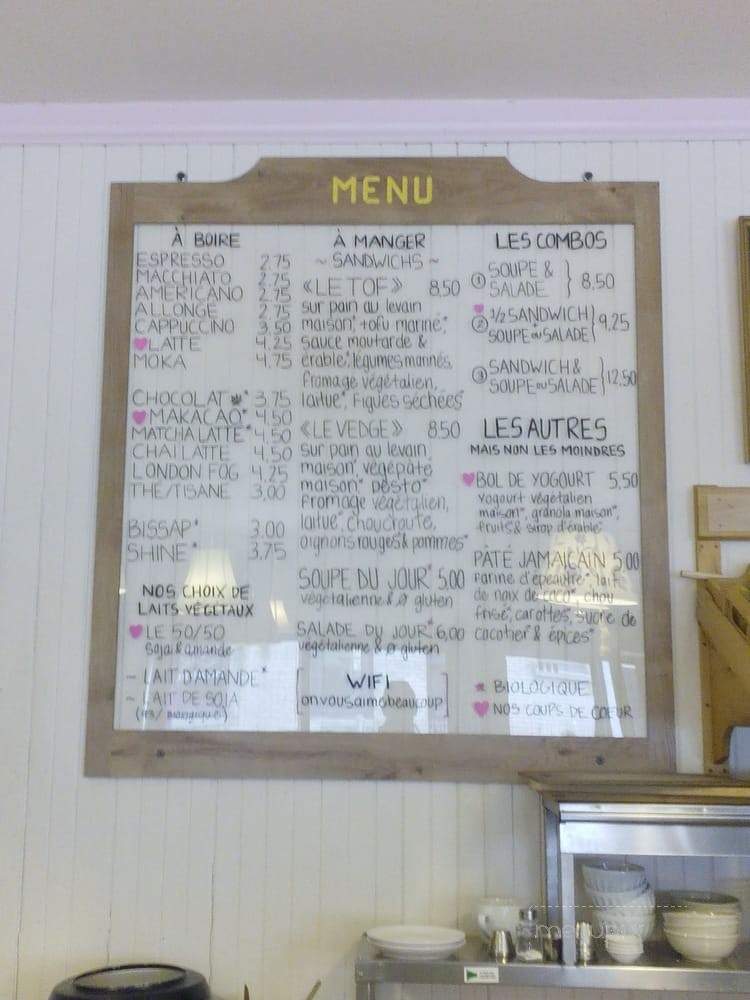 MENU
À BOIRE
ESPRESSO 2.75
MACCHIATO 2.75
AMERICANO 2.75
ALLONGÉ 2.75
CAPPUCCINO 3.50
LATTE 4.25
MOKA 4.75
CHOCOLAT * 3.75
MAKACAO* 4.50
MATCHA LATTE* 4.50
CHAI LATTE 4.50
LONDON FOG 4.25
THÉ/TISANE 3.00
BISSAP* 3.00
SHINE* 3.75
NOS CHOIX DE
LAITS VÉGÉTAUX
LE 50/50
Soja & amande
- LAIT D'AMANDE*
- LAIT DE SOJA
À MANGER
~ SANDWICHS ~
«LE TOF» 8.50
sur pain au levain
maison*, tofu mariné*,
sauce moutarde &
érable*, légumes marinés,
fromage végétalien,
laitue*, figues séchées*
«LE VEDGE» 8.50
sur pain au levain
maison*, végépâté
maison* pesto*
fromage végétalien,
laitue*, choucroute,
oignons rouges & pommes*
SOUPE DU JOUR* 5.00
végétalienne & ø gluten
SALADE DU JOUR* 6.00
végétalienne & ø gluten
WIFI
onvousaimebeaucoup
LES COMBOS
① SOUPE & SALADE } 8.50
② 1/2 SANDWICH + SOUPE OU SALADE } 9.25
③ SANDWICH & SOUPE OU SALADE } 12.50
LES AUTRES
MAIS NON LES MOINDRES
BOL DE YOGOURT 5.50
yogourt végétalien
maison*, granola maison*,
fruits & sirop d'érable*
PÂTÉ JAMAÏCAIN 5.00
Farine d'épeautre*, lait
de noix de coco*, chou
frisé, carottes*, sucre de
cocotier* & épices*
* BIOLOGIQUE
NOS COUPS DE COEUR